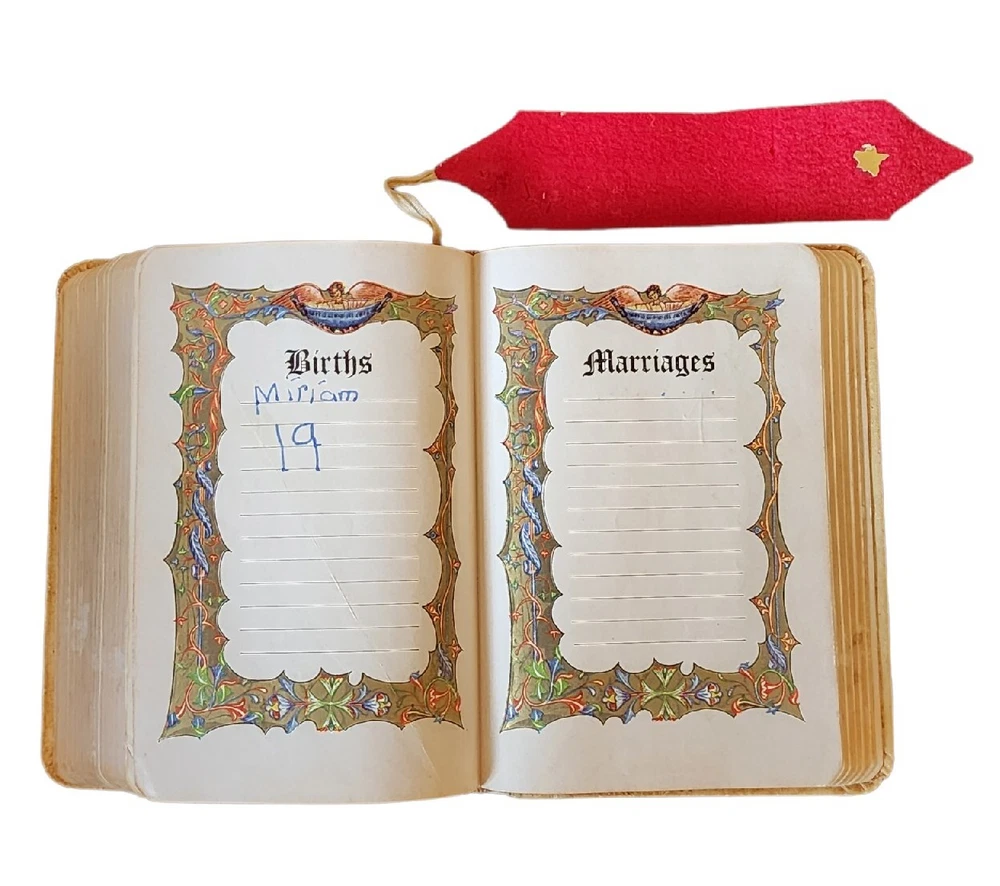 Births
Miriam
19
Marriages